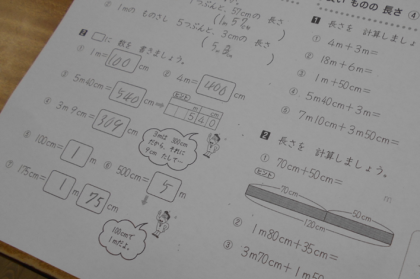 1mの ものさし 5つぶんと、3cmの 長さ
(5m3cm)
2 □に 数を 書きましょう。
① 1m=100cm
② 4m=400cm
③ 5m40cm=540cm
ヒント
540
④ 3m9cm=309cm
3mは 300cm
だから、それに
9cm たして…
⑤ 100cm=1m
⑥ 500cm=5m
⑦ 175cm=1m75cm
100cmで
1mだよ。
ものの 長さ ④
1 長さを 計算しましょう。
① 4m+3m=
② 18m+6m=
③ 1m+50cm=
④ 5m40cm+3m=
⑤ 7m10cm+3m50cm=
2 長さを 計算しましょう。
① 70cm+50cm=
ヒント
70cm
50cm
120cm
② 1m80cm+35cm=
③ 3m70cm+1m50